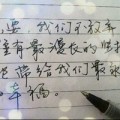 要 我们不放弃
有最漫长的
也带给我们最
幸福。